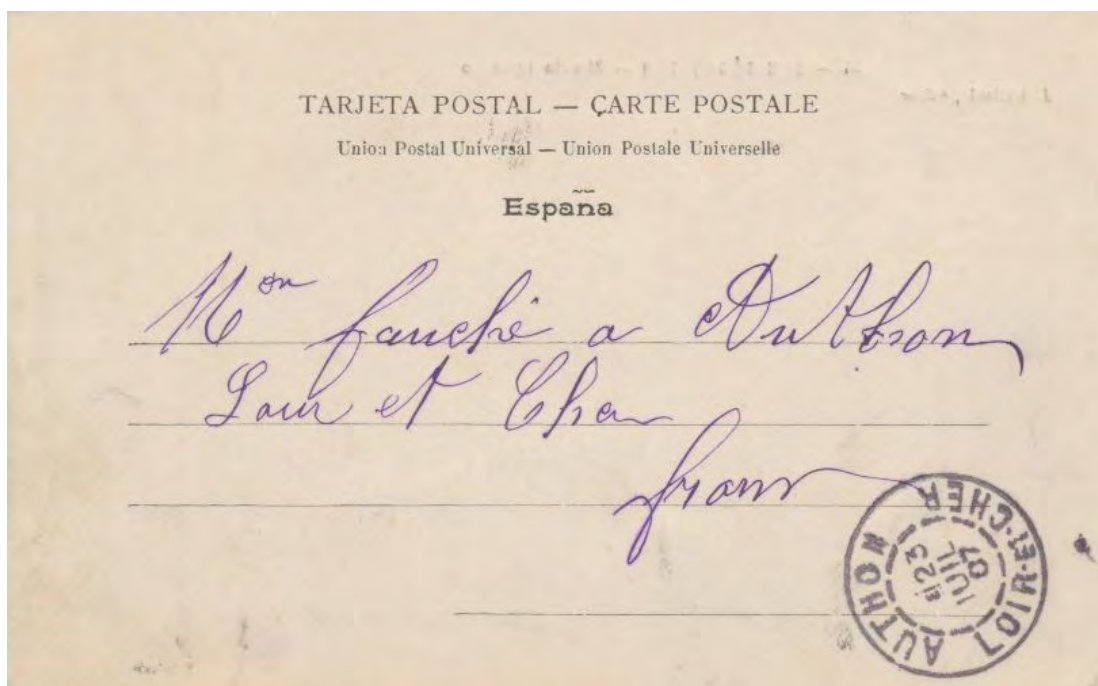 TARJETA POSTAL — CARTE POSTALE
Union Postal Universal — Union Postale Universelle
España
Mon fauché a Authon
Loir et Cher
france
AUTHON LOIR-ET-CHER
23
JUIL
07